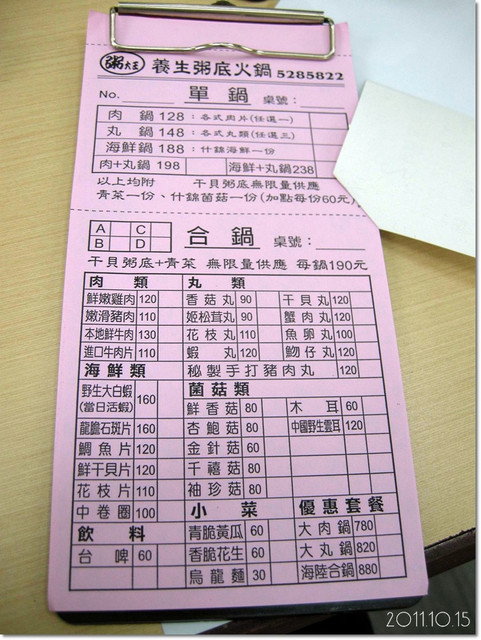 粥大王 養生粥底火鍋 5285822
No. 單鍋 桌號：
肉鍋 128：各式肉片(任選一)
丸鍋 148：各式丸類(任選三)
海鮮鍋 188：什錦海鮮一份
肉+丸鍋 198 海鮮+丸鍋238
以上均附 干貝粥底無限量供應
青菜一份、什錦菌菇一份(加點每份60元)
A C 合鍋 桌號：
B D
干貝粥底+青菜 無限量供應 每鍋190元
肉類 丸類
鮮嫩雞肉 120 香菇丸 90 干貝丸 120
嫩滑豬肉 110 姬松茸丸 90 蟹肉丸 120
本地鮮牛肉 130 花枝丸 110 魚卵丸 100
進口牛肉片 110 蝦丸 120 魩仔丸 120
海鮮類 秘製手打豬肉丸 120
野生大白蝦 160 菌菇類
(當日活蝦) 鮮香菇 80 木耳 60
龍膽石斑片 160 杏鮑菇 80 中國野生雲耳 120
鯛魚片 120 金針菇 60
鮮干貝片 110 千禧菇 80
花枝片 110 袖珍菇 80
中卷圈 100 小菜 優惠套餐
飲料 青脆黃瓜 60 大肉鍋 780
台啤 60 香脆花生 60 大丸鍋 820
烏龍麵 30 海陸合鍋 880
2011.10.15